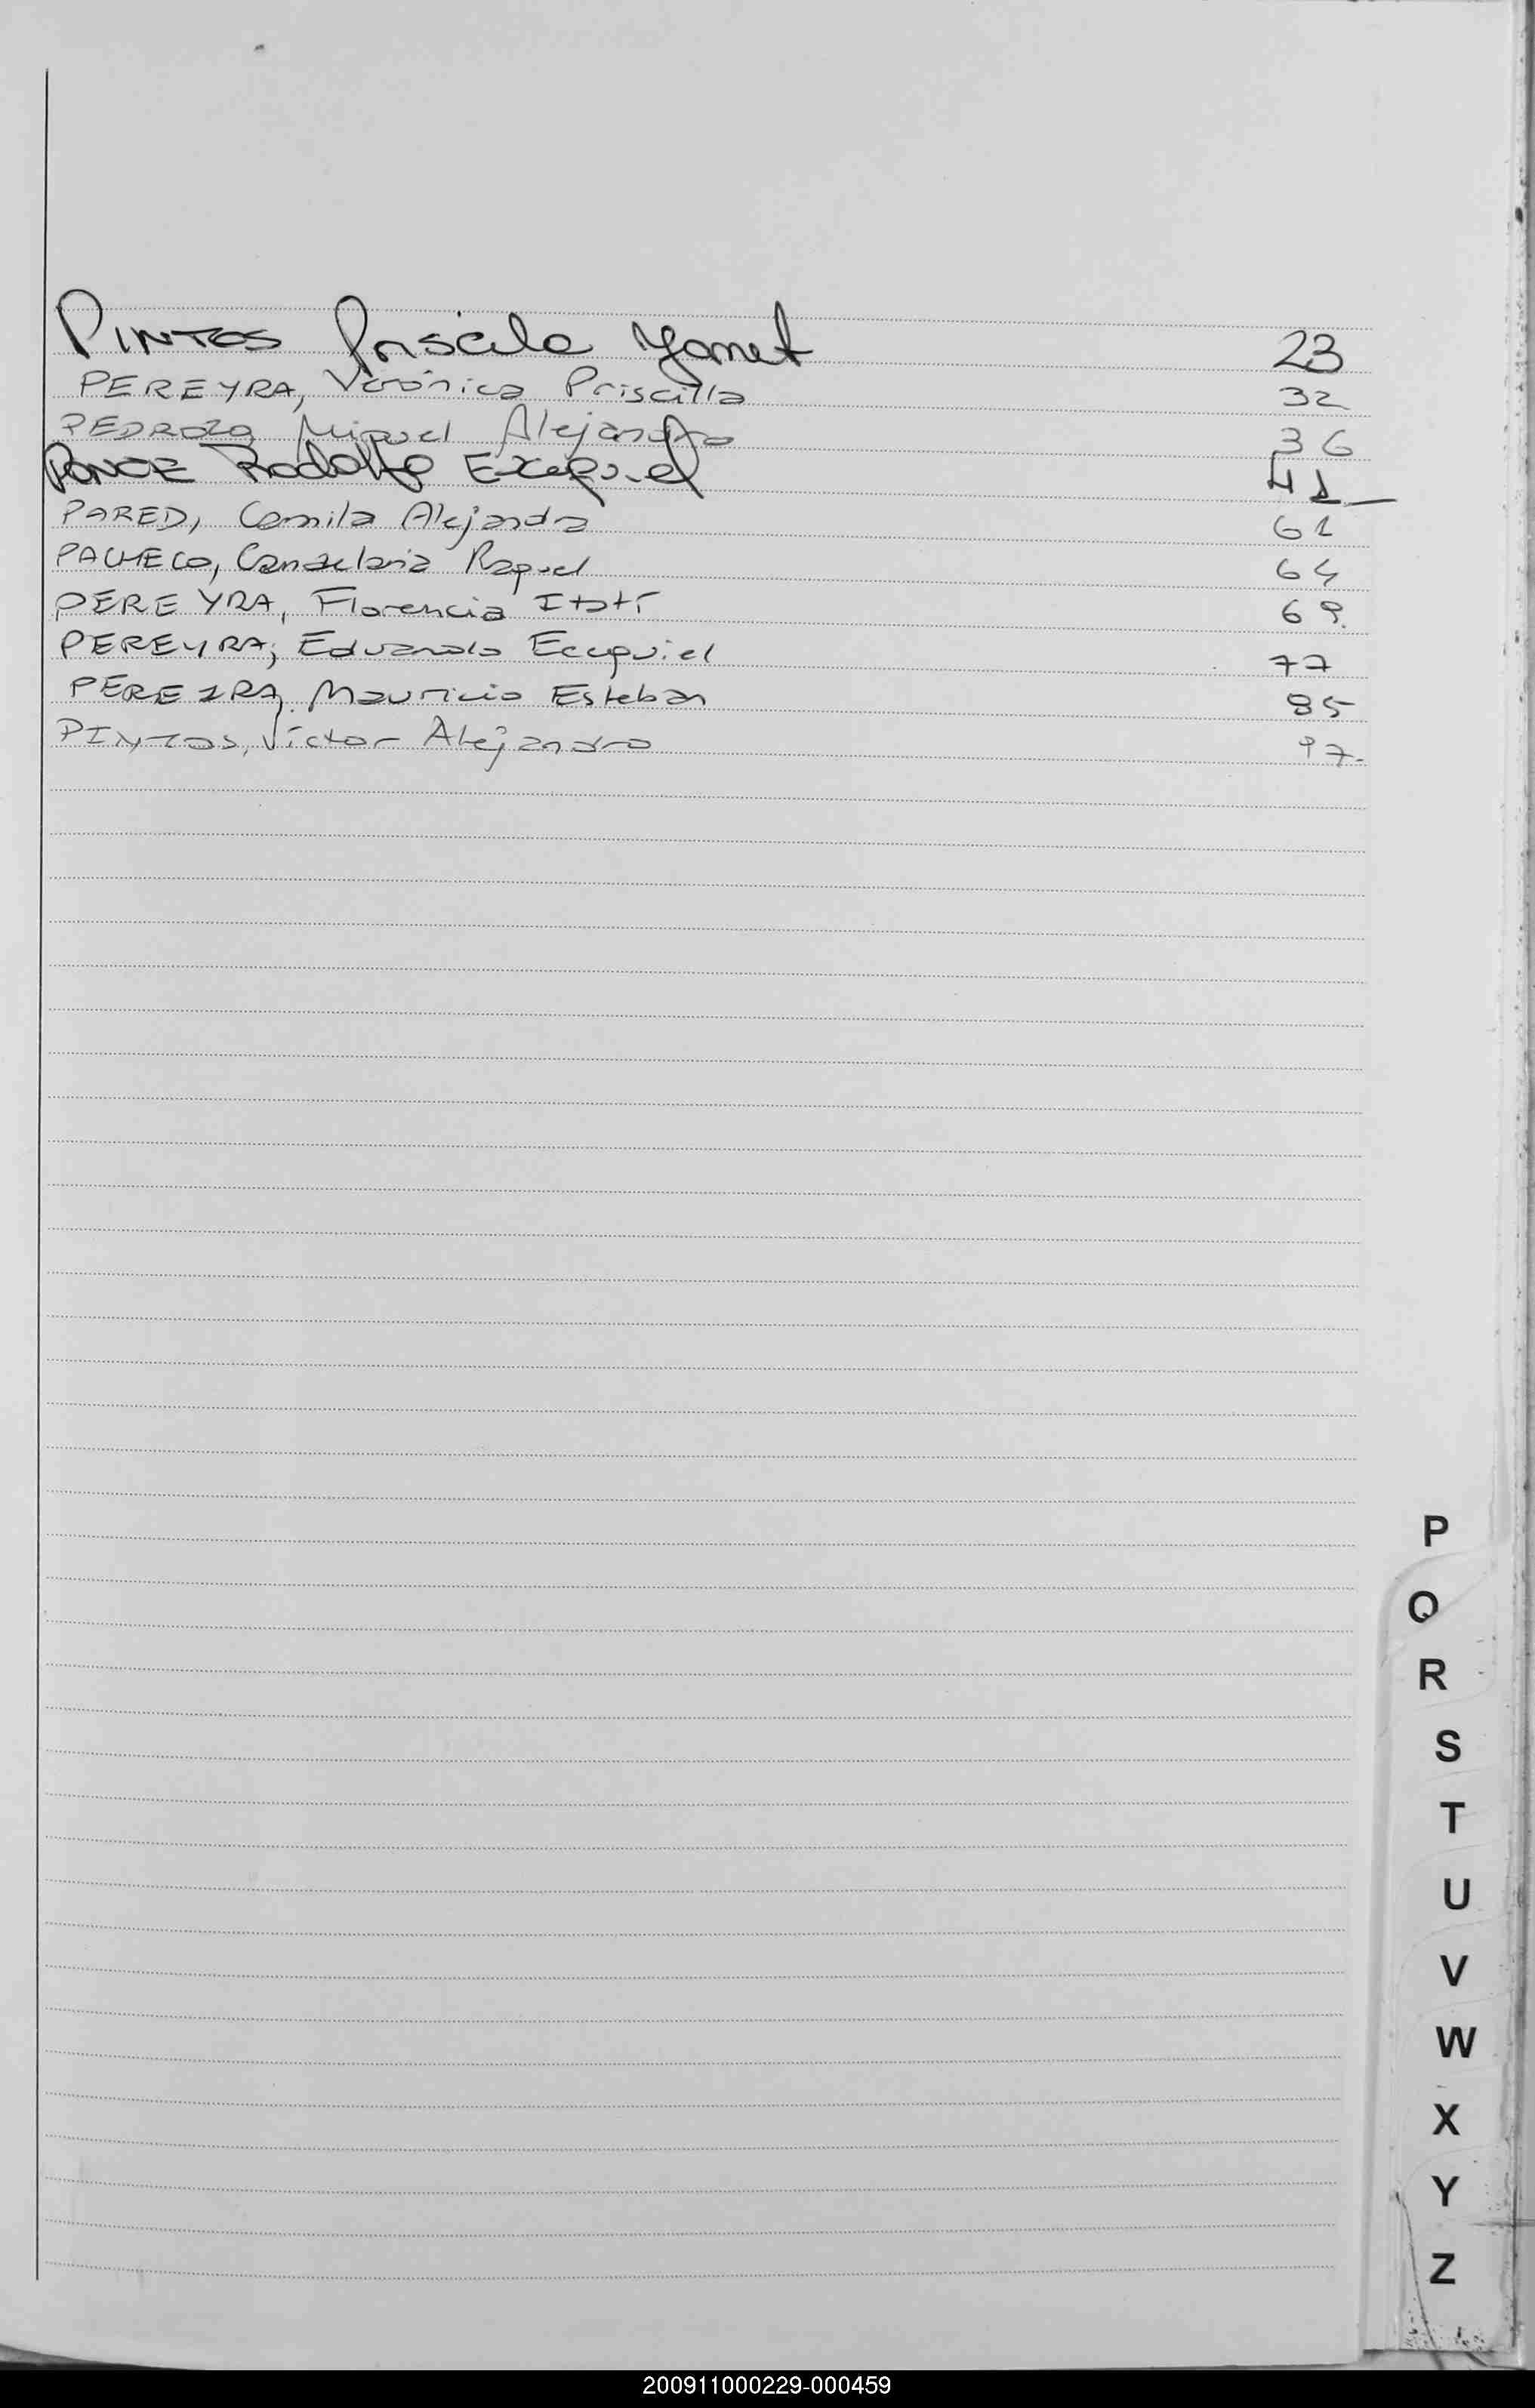 PINTOS Priscila Yamet 23
PEREYRA, Verónica Priscilla 32
PEDROZO Miguel Alejandro 36
PONCE Rodolfo Exequiel 41
PARED, Camila Alejandra 61
PACHECO, Candelaria Raquel 64
PEREYRA, Florencia Itatí 69.
PEREYRA, Eduardo Ecequiel 77
PEREIRA, Mauricio Esteban 85
PINTOS, Víctor Alejandro 97.
P
Q
R
S
T
U
V
W
X
Y
Z
200911000229-000459